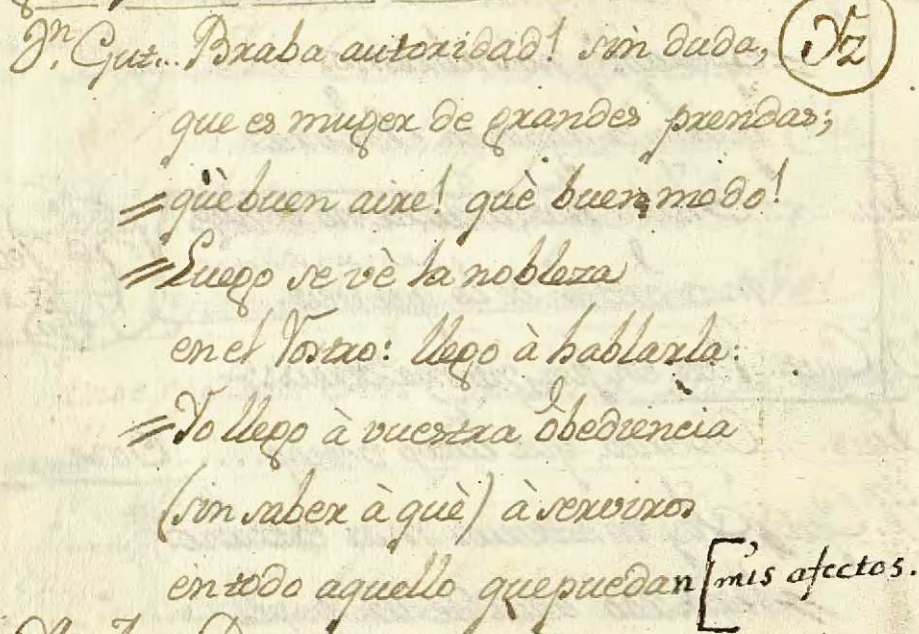 Dn. Gut... Braba autoridad! sin duda,
que es muger de grandes prendas;
què buen aire! què buen modo!
Luego se vè la nobleza
en el Rostro: llego à hablarla:
Yo llego à vuestra obediencia
(sin saber à què) à serviros
en todo aquello que puedan [mis afectos.